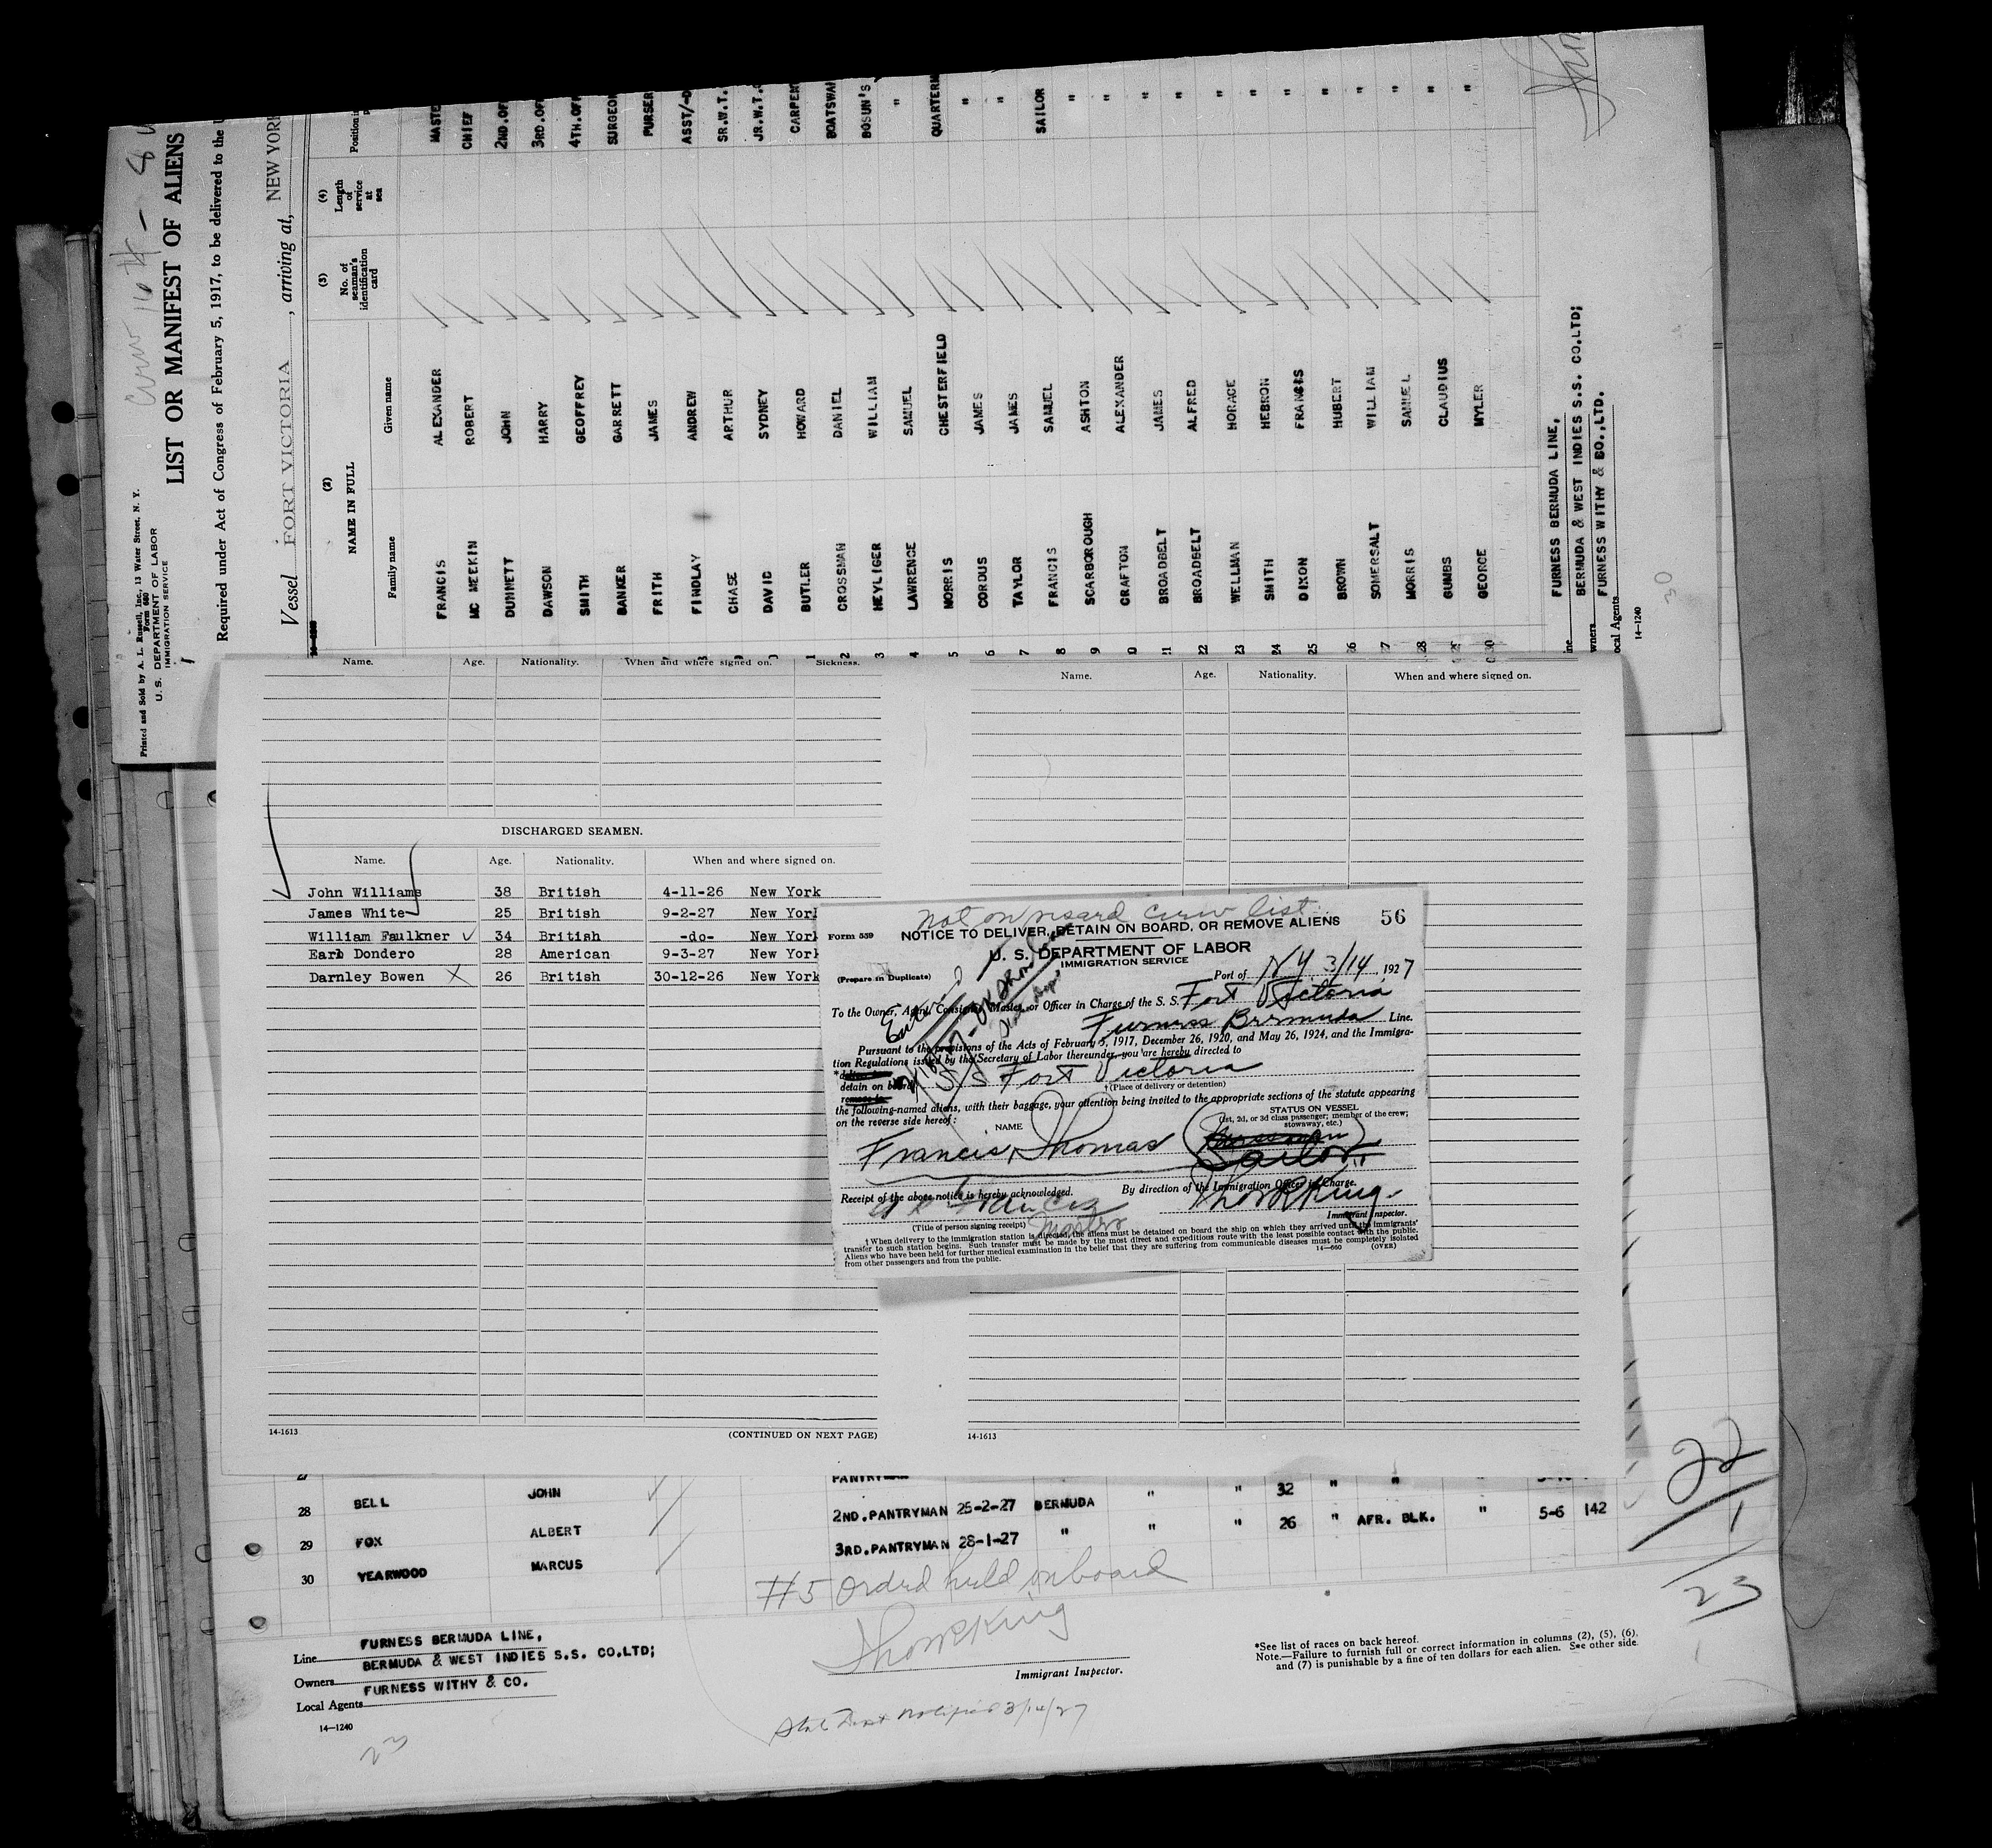 Printed and Sold by A. L. Russell, Inc., 13 Water Street, N. Y.
Form 680
U. S. DEPARTMENT OF LABOR
IMMIGRATION SERVICE
LIST OR MANIFEST OF ALIENS
Required under Act of Congress of February 5, 1917, to be delivered to the
Vessel FORT VICTORIA, arriving at, NEW YORK
(2) (3) (4)
NAME IN FULL No. of seaman's identification card Length of service at sea Position in
Family name Given name
FRANCIS ALEXANDER MASTE
MC MEEKIN ROBERT CHIEF
DUNNETT JOHN 2ND.OF
DAWSON HARRY 3RD.OF
SMITH GEOFFREY 4TH.OF
BANKER GARRETT SURGEO
FRITH JAMES PURSER
FINDLAY ANDREW ASST/-D
CHASE ARTHUR SR.W.T.
DAVID SYDNEY JR.W.T.
1 BUTLER HOWARD CARPEN
2 CROSSMAN DANIEL BOATSWAI
3 HEYLIGER WILLIAM BOSUN'S
4 LAWRENCE SAMUEL "
5 MORRIS CHESTERFIELD QUARTERM
6 CORDUS JAMES "
7 TAYLOR JAMES "
8 FRANCIS SAMUEL SAILOR
9 SCARBOROUGH ASHTON "
0 CRAFTON ALEXANDER "
21 BROADBELT JAMES "
22 BROADBELT ALFRED "
23 WELLMAN HORACE "
24 SMITH HEBRON "
25 DIXON FRANCIS "
26 BROWN HUBERT "
27 SOMERSALT WILLIAM "
28 MORRIS SAMUEL "
29 GUMBS CLAUDIUS "
30 GEORGE MYLER "
FURNESS BERMUDA LINE,
BERMUDA & WEST INDIES S.S. CO.LTD;
FURNESS WITHY & CO.,LTD.
ocal Agents
14-1240
30
Name. Age. Nationality. When and where signed on. Sickness.
Name. Age. Nationality. When and where signed on.
DISCHARGED SEAMEN.
Name. Age. Nationality. When and where signed on.
John Williams 38 British 4-11-26 New York
James White 25 British 9-2-27 New York
William Faulkner ✓ 34 British -do- New York
Earl Dondero 28 American 9-3-27 New York
Darnley Bowen X 26 British 30-12-26 New York
14-1613 (CONTINUED ON NEXT PAGE)
14-1613
not on visaed crew list
Form 559 56
NOTICE TO DELIVER, DETAIN ON BOARD, OR REMOVE ALIENS
U. S. DEPARTMENT OF LABOR
IMMIGRATION SERVICE
(Prepare in Duplicate)
Port of NY 3/14, 1927
To the Owner, Agent, Consignee, Master, or Officer in Charge of the S. S. Fort Victoria
Furness Bermuda Line.
Pursuant to the provisions of the Acts of February 5, 1917, December 26, 1920, and May 26, 1924, and the Immigra-
tion Regulations issued by the Secretary of Labor thereunder, you are hereby directed to
*deliver to
detain on board S/S Fort Victoria
remove to
†(Place of delivery or detention)
the following-named aliens, with their baggage, your attention being invited to the appropriate sections of the statute appearing
on the reverse side hereof:
NAME
STATUS ON VESSEL
(1st, 2d, or 3d class passenger; member of the crew;
stowaway, etc.)
Francis, Thomas
Sailor
Receipt of the above notice is hereby acknowledged. By direction of the Immigration Officer in Charge.
Francis
Thos R King
(Title of person signing receipt) Master
Immigrant Inspector.
†When delivery to the immigration station is directed, the aliens must be detained on board the ship on which they arrived until the immigrants'
transfer to such station begins. Such transfer must be made by the most direct and expeditious route with the least possible contact with the public.
Aliens who have been held for further medical examination in the belief that they are suffering from communicable diseases must be completely isolated
from other passengers and from the public.
14-660 (OVER)
27 PANTRYMAN
28 BELL JOHN 2ND.PANTRYMAN 25-2-27 BERMUDA " " 32 " " "
29 FOX ALBERT 3RD.PANTRYMAN 28-1-27 " " " 26 " AFR. BLK. " 5-6 142
30 YEARWOOD MARCUS
#5 Ordrd held onboard
Thos R King
Immigrant Inspector.
22
1
23
Line FURNESS BERMUDA LINE,
Owners BERMUDA & WEST INDIES S.S. CO.LTD;
Local Agents FURNESS WITHY & CO.
14-1240
23
State Dept Notified 3/14/27
*See list of races on back hereof.
Note.—Failure to furnish full or correct information in columns (2), (5), (6),
and (7) is punishable by a fine of ten dollars for each alien. See other side.